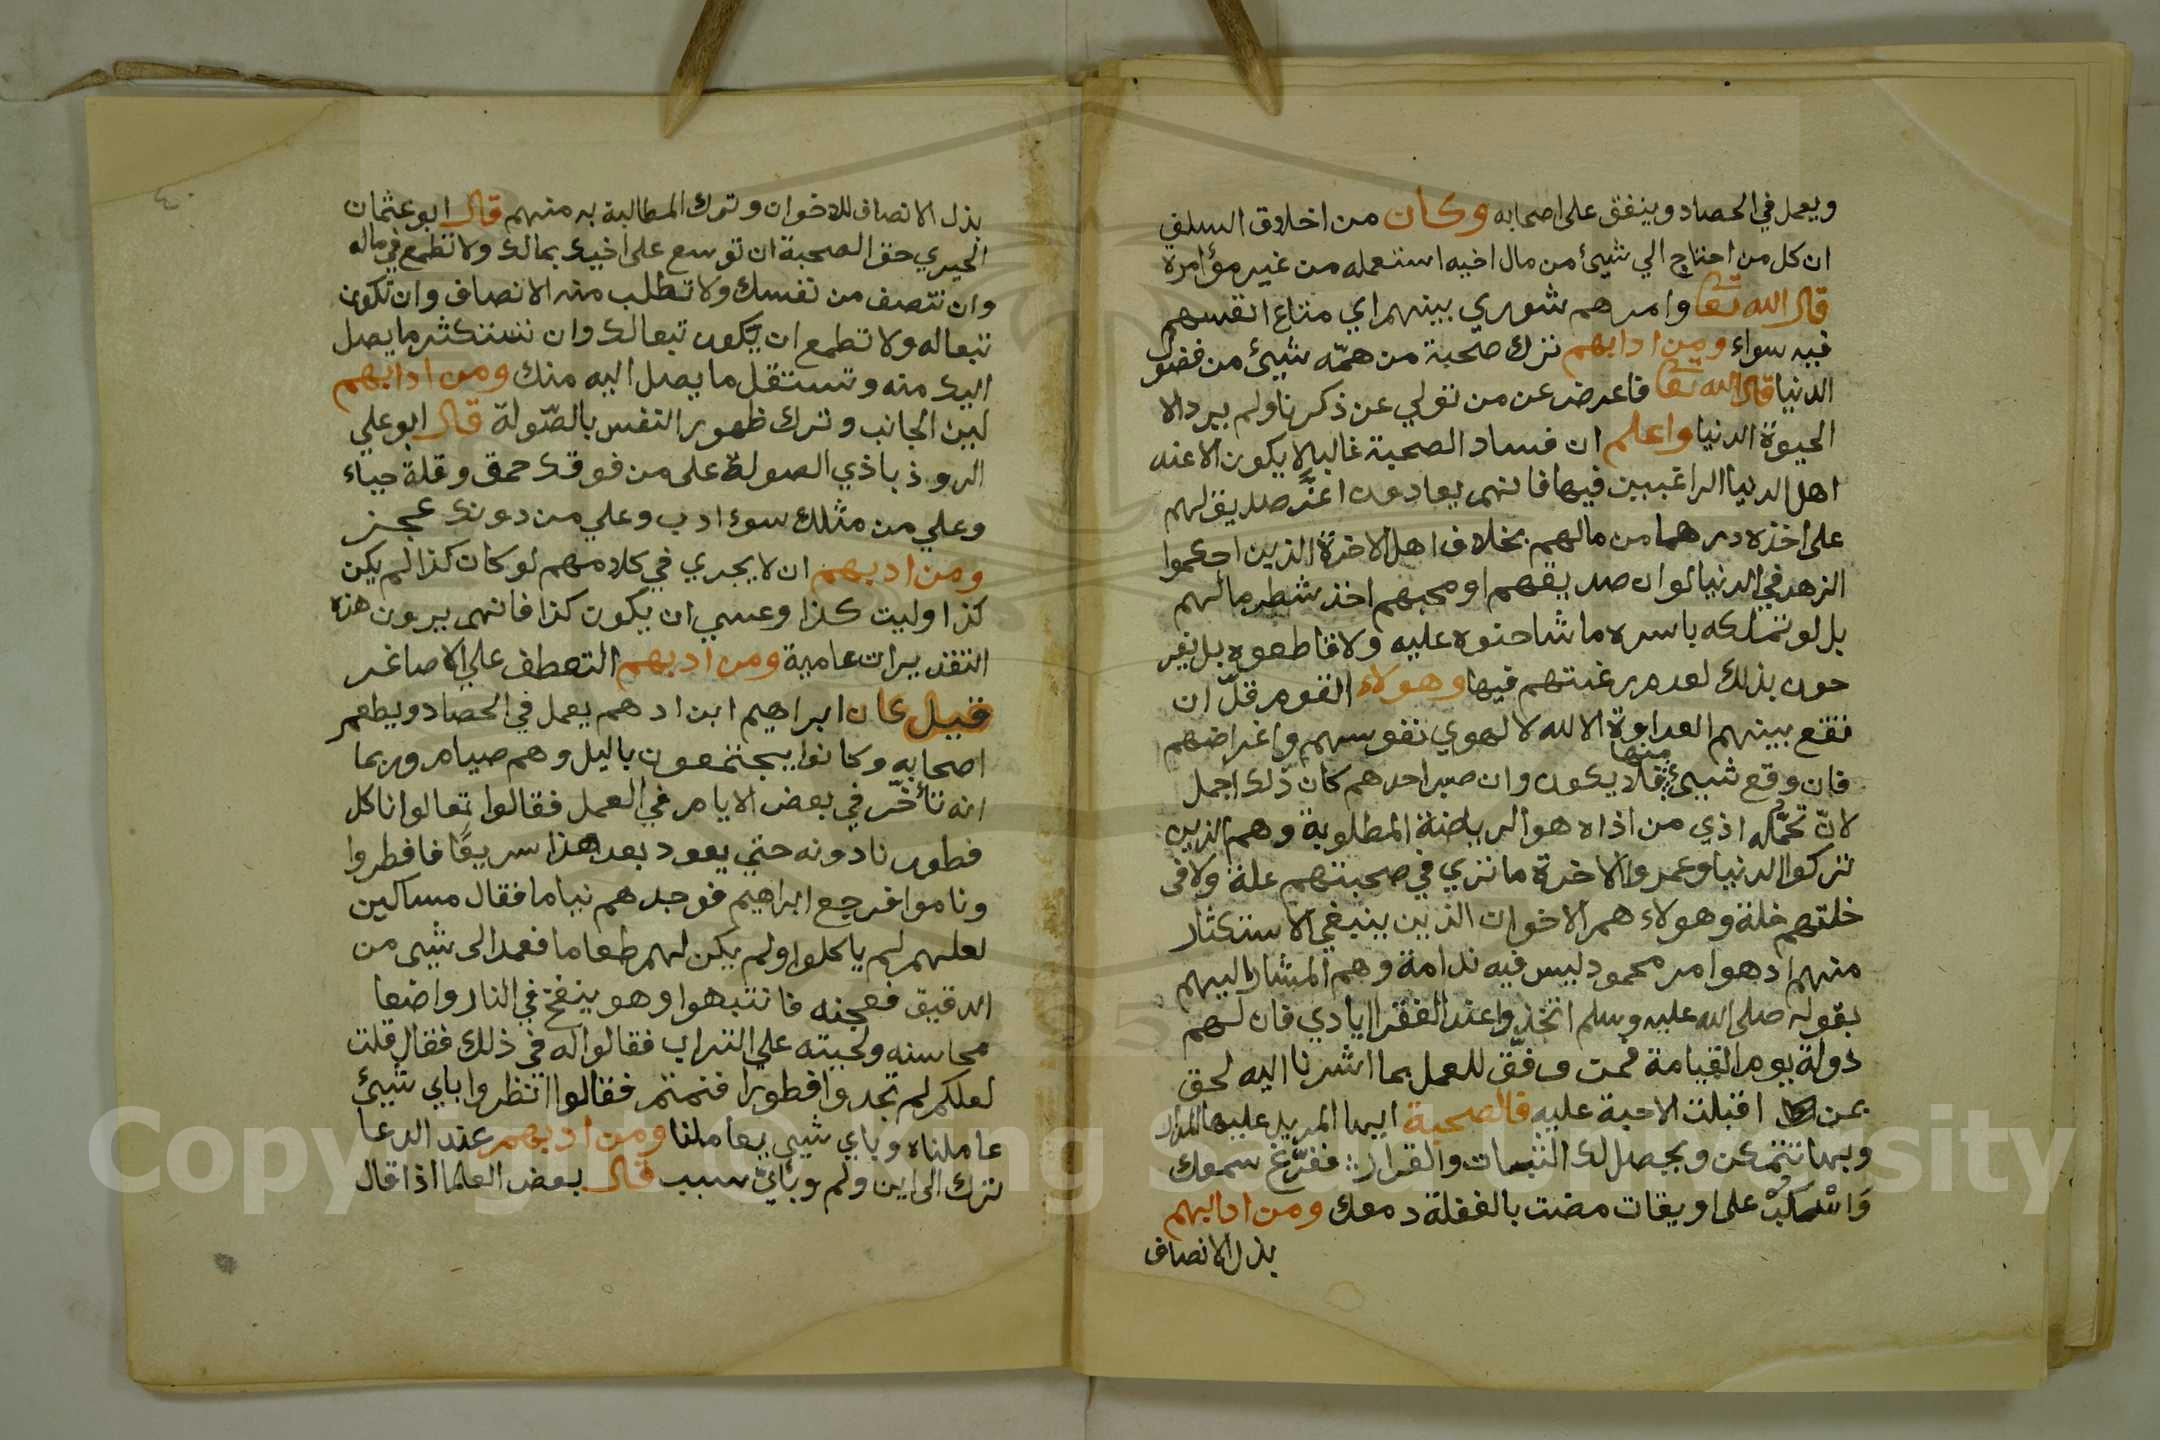 ويعمل في الحصاد وينفق على اصحابه وكان من اخلاق السلف
ان كل من احتاج الي شيئ من مال اخيه استعمله من غير مؤامرة
قال الله تعا وامرهم شوري بينهم اي متاع انفسهم
فيه سواء ومن ادابهم ترك صحبة من همّه شيئ من فضول
الدنيا قال الله تعا فاعرض عن من تولي عن ذكرنا ولم يرد الا
الحيوة الدنيا واعلم ان فساد الصحبة غالبا لا يكون الا عنه
اهل الدنيا الراغبين فيها فانهم يعادون اعزّ صديق لهم
على اخذه درهما من مالهم بخلاف اهل الاخرة الذين احكموا
الزهد في الدنيا لو ان صديقهم او محبهم اخذ شطر مالهم
بل لو تملكه باسره ما شاحنوه عليه ولا قاطعوه بل يفر
حون بذلك لعدم رغبتهم فيها وهولاء القوم قلّ ان
تقع بينهم العداوة الا لله لا لهوي نفوسهم واغراضهم
فان وقع شيئ منها فلا يكون وان صبر احدهم كان ذلك اجمل
لانّ تحمّله اذي من اذاه هو الرياضة المطلوبة وهم الذين
تركوا الدنيا وعمروا الاخرة ما تري في صحبتهم علة ولا في
خلتهم خلة وهولاء هم الاخوان الذين ينبغي الاستكثار
منهم اذ هو امر محمود ليس فيه ندامة وهم المشار اليهم
بقوله صلى الله عليه وسلم اتخذوا عند الفقرا ايادي فان لهم
دولة يوم القيامة فمن وفّق للعمل بما اشرنا اليه لحق
بمن اقبلت الاحبة عليه فالصحبة ايها المريد عليها المدار
وبها تتمكن ويحصل لك الثبات والقرار ففرّغ سمعك
وَاسْكُبْ على اويقات مضت بالغفلة دمعك ومن ادابهم
بذل الانصاف
٤٠
بذل الانصاف للاخوان وترك المطالبة به منهم قال ابو عثمان
الحيري حق الصحبة ان توسع على اخيك بمالك ولا تطمع في ماله
وان تنصف من نفسك ولا تطلب منه الانصاف وان تكون
تبعا له ولا تطمع ان يكون تبعا لك وان تستكثر ما يصل
اليك منه وتستقل ما يصل اليه منك ومن ادابهم
لين الجانب وترك ظهور النفس بالصّولة قال ابو علي
الروذباذي الصولة على من فوقك حمق وقلة حياء
وعلي من مثلك سوء ادب وعلي من دونك عجز
ومن ادبهم ان لا يجري في كلامهم لو كان كذا لم يكن
كذا وليت كذا وعسي ان يكون كذا فانهم يرون هذه
التقديرات عامية ومن ادبهم التعطف علي الاصاغر
قيل كان ابراهيم ابن ادهم يعمل في الحصاد ويطعم
اصحابه وكانوا يجتمعون باليل وهم صيام وربما
انه تأخّر في بعض الايام في العمل فقالوا تعالوا ناكل
فطورنا دونه حتي يعود بعد هذا سريعًا فافطروا
وناموا فرجع ابراهيم فوجدهم نياما فقال مساكين
لعلهم لم ياكلوا ولم يكن لهم طعاما فعمد الى شيي من
الدقيق فعجنه فانتبهوا وهو ينفخ في النار واضعا
محاسنه ولحيته علي التراب فقالوا له في ذلك فقال قلت
لعلكم لم تجدوا فطورا فنمتم فقالوا انظروا باي شيئ
عاملناه وباي شيي يعاملنا ومن ادبهم عند الدعا
ترك الى اين ولم وبأيّ سبب قال بعض العلما اذا قال
Copyright © King Saud University